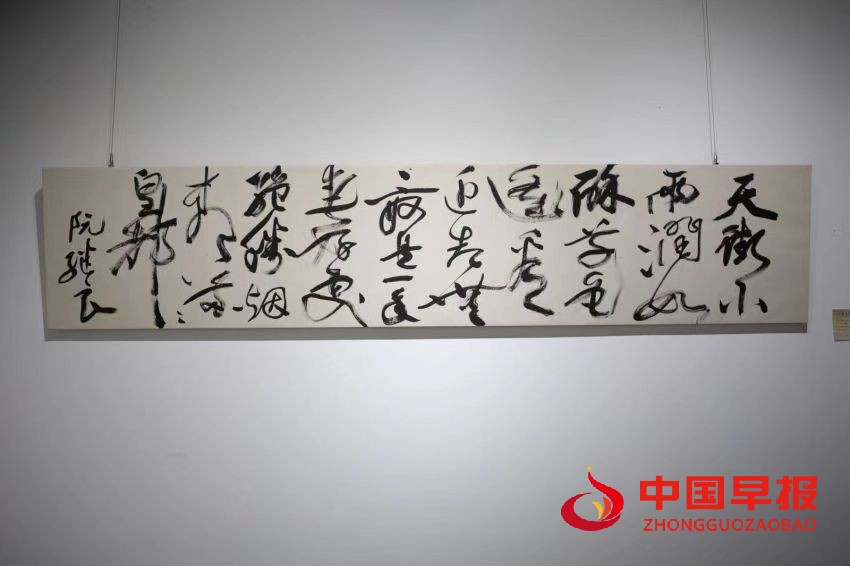 天街小
雨潤如
酥草色
遥看
近却無
最是一年
春好處
絶勝烟
柳满
皇都
阮
中国早报
ZHONGGUOZAOBAO